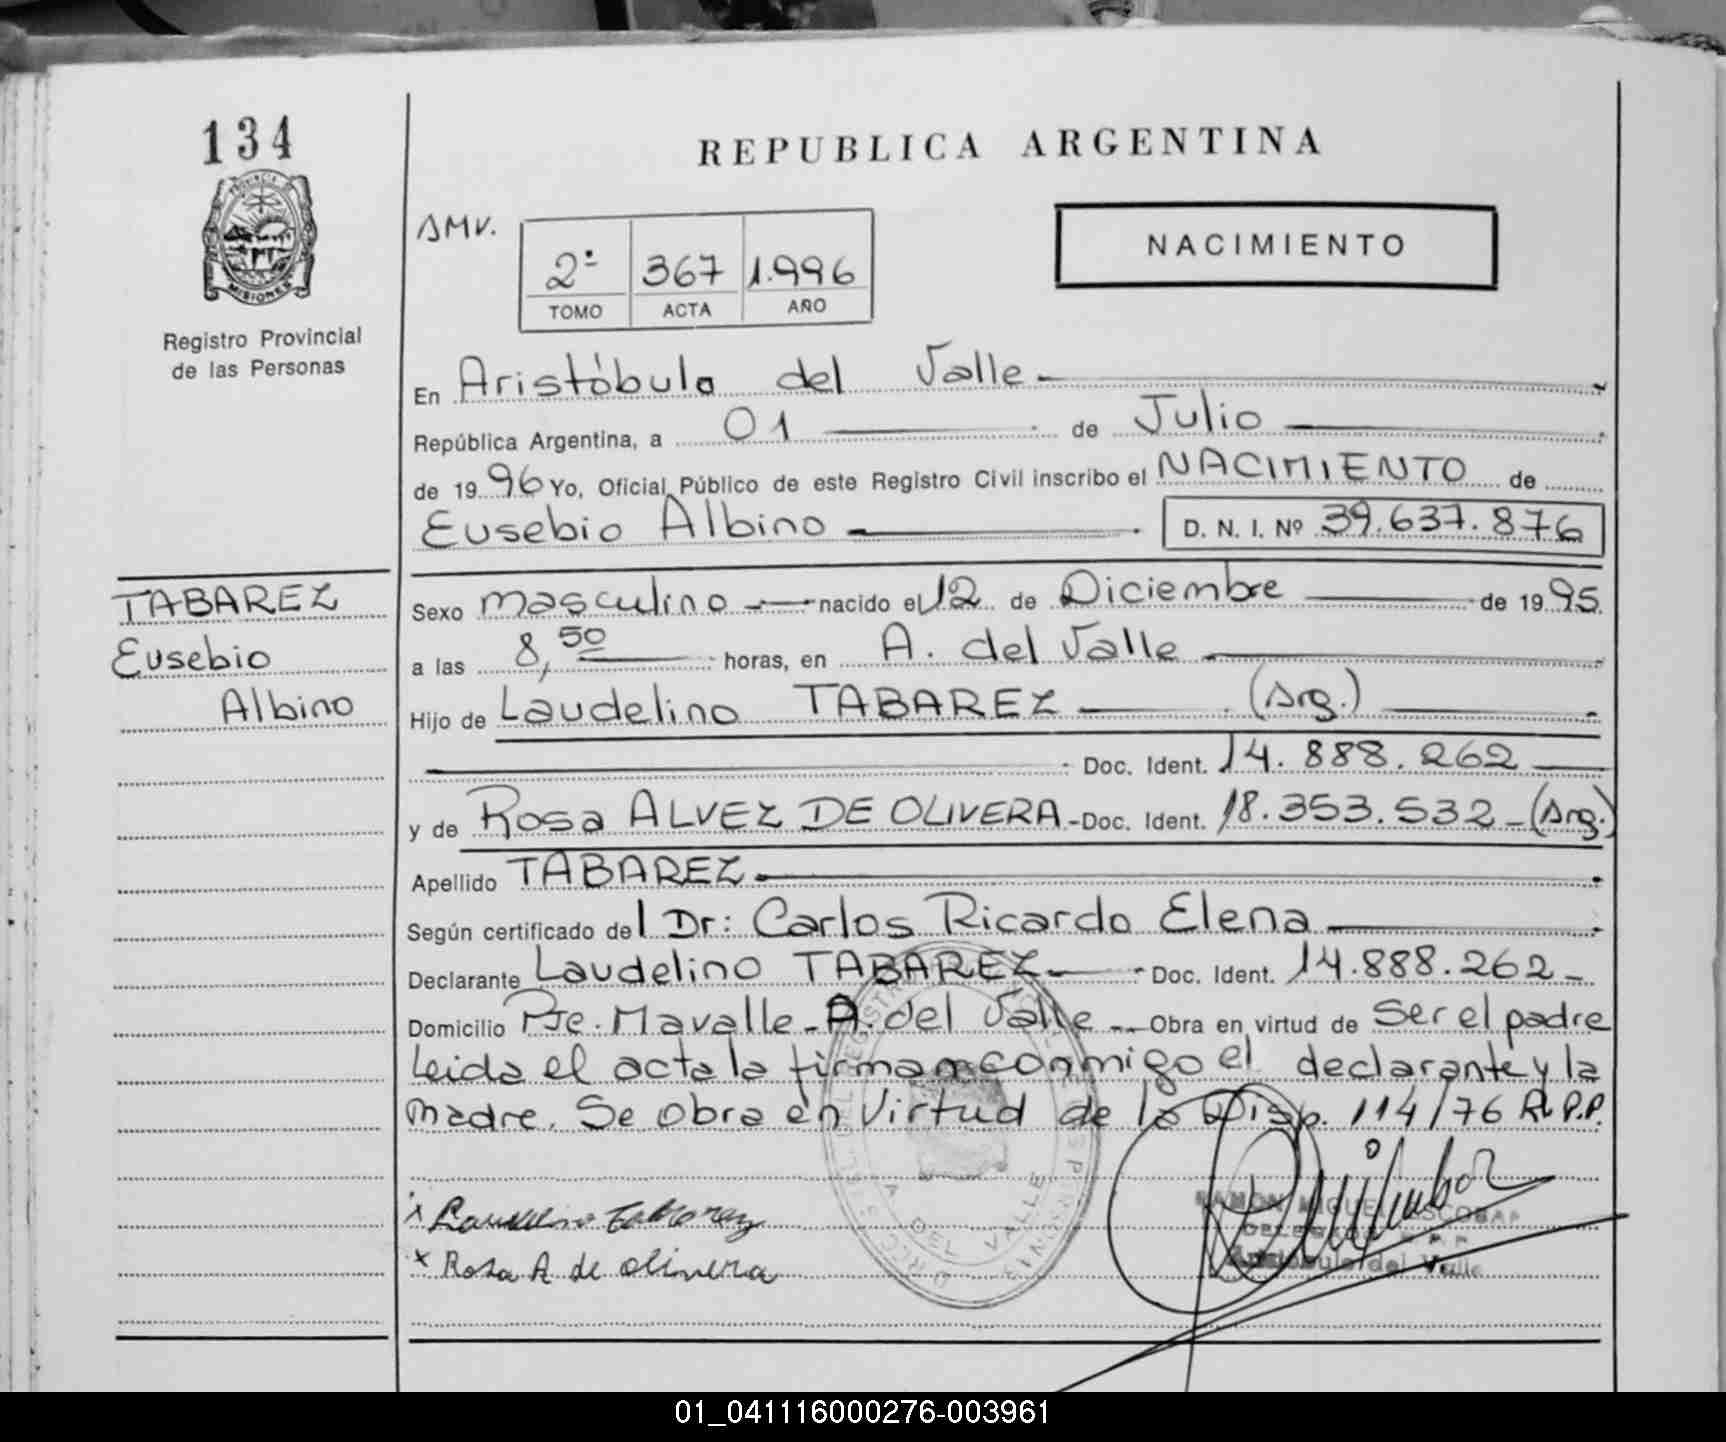 134
PROVINCIA DE
MISIONES
Registro Provincial
de las Personas
TABAREZ
Eusebio
Albino
REPUBLICA ARGENTINA
AMV.
2º 367 1.996
TOMO ACTA AÑO
NACIMIENTO
En Aristóbulo del Valle
República Argentina, a 01 de Julio
de 1996 Yo, Oficial Público de este Registro Civil inscribo el NACIMIENTO de
Eusebio Albino D. N. I. Nº 39.637.876
Sexo masculino nacido el 12 de Diciembre de 1995.
a las 8,50 horas, en A. del Valle
Hijo de Laudelino TABAREZ (Arg.)
Doc. Ident. 14.888.262
y de Rosa ALVEZ DE OLIVERA - Doc. Ident. 18.353.532 - (Arg.)
Apellido TABAREZ
Según certificado del Dr: Carlos Ricardo Elena
Declarante Laudelino TABAREZ Doc. Ident. 14.888.262 -
Domicilio Pje. Mavalle - A. del Valle -- Obra en virtud de ser el padre
Leida el acta la firman conmigo el declarante y la
madre. Se obra en virtud de la Disp. 114/76 R.P.P.
x Laudelino Tabarez
x Rosa A de olivera
A. DEL VALLE
RAMON MIGUEL ESCOBAR
DELEGADO R.P.P.
Aristobulo del Valle
01_041116000276-003961